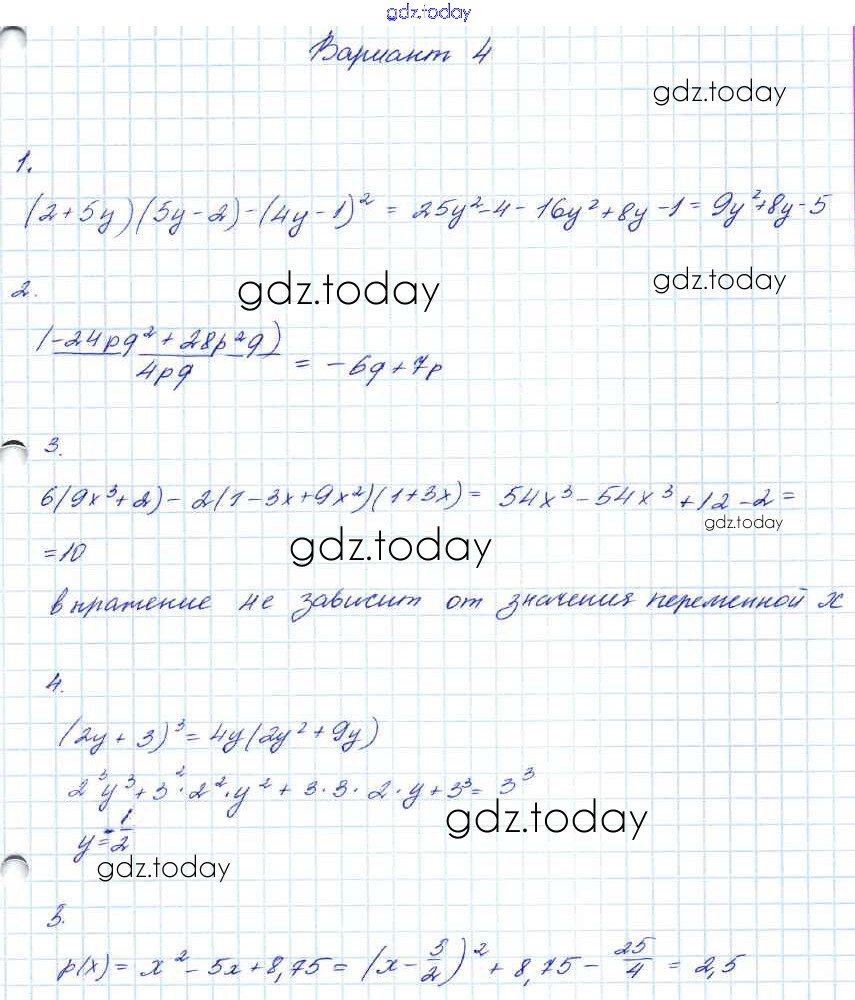 gdz.today
Вариант 4
gdz.today
1.
(2+5y)(5y-2)-(4y-1)² = 25y²-4-16y²+8y-1=9y²+8y-5
2.
gdz.today
gdz.today
(-24pq²+28p²q)
4pq
= -6q+7p
3.
6(9x³+2)-2(1-3x+9x²)(1+3x)= 54x³-54x³+12-2=
gdz.today
=10
gdz.today
выражение не зависит от значения переменной x
4.
(2y+3)³=4y(2y²+9y)
2³y³+3²·2²·y²+3·3·2·y+3³= 3³
gdz.today
y=-1/2
gdz.today
5.
p(x)= x²-5x+8,75=(x-5/2)²+8,75-25/4=2,5
gdz.today
gdz.today